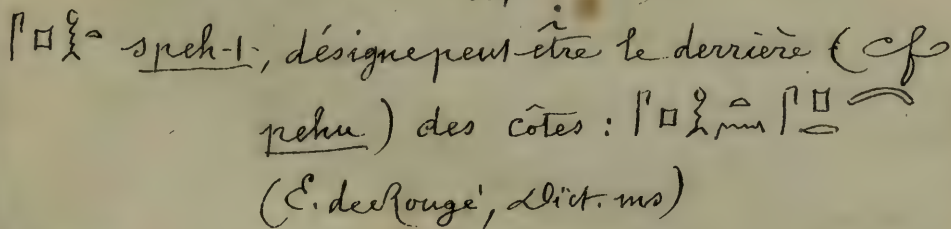 𓋴𓊪𓎛𓏏 speh-t, désigne peut être le derrière (cf
pehu) des côtes : 𓋴𓊪𓎛𓏏𓈖 𓋴𓊪𓂋𓄹
(E. de Rougé, Dict. ms)